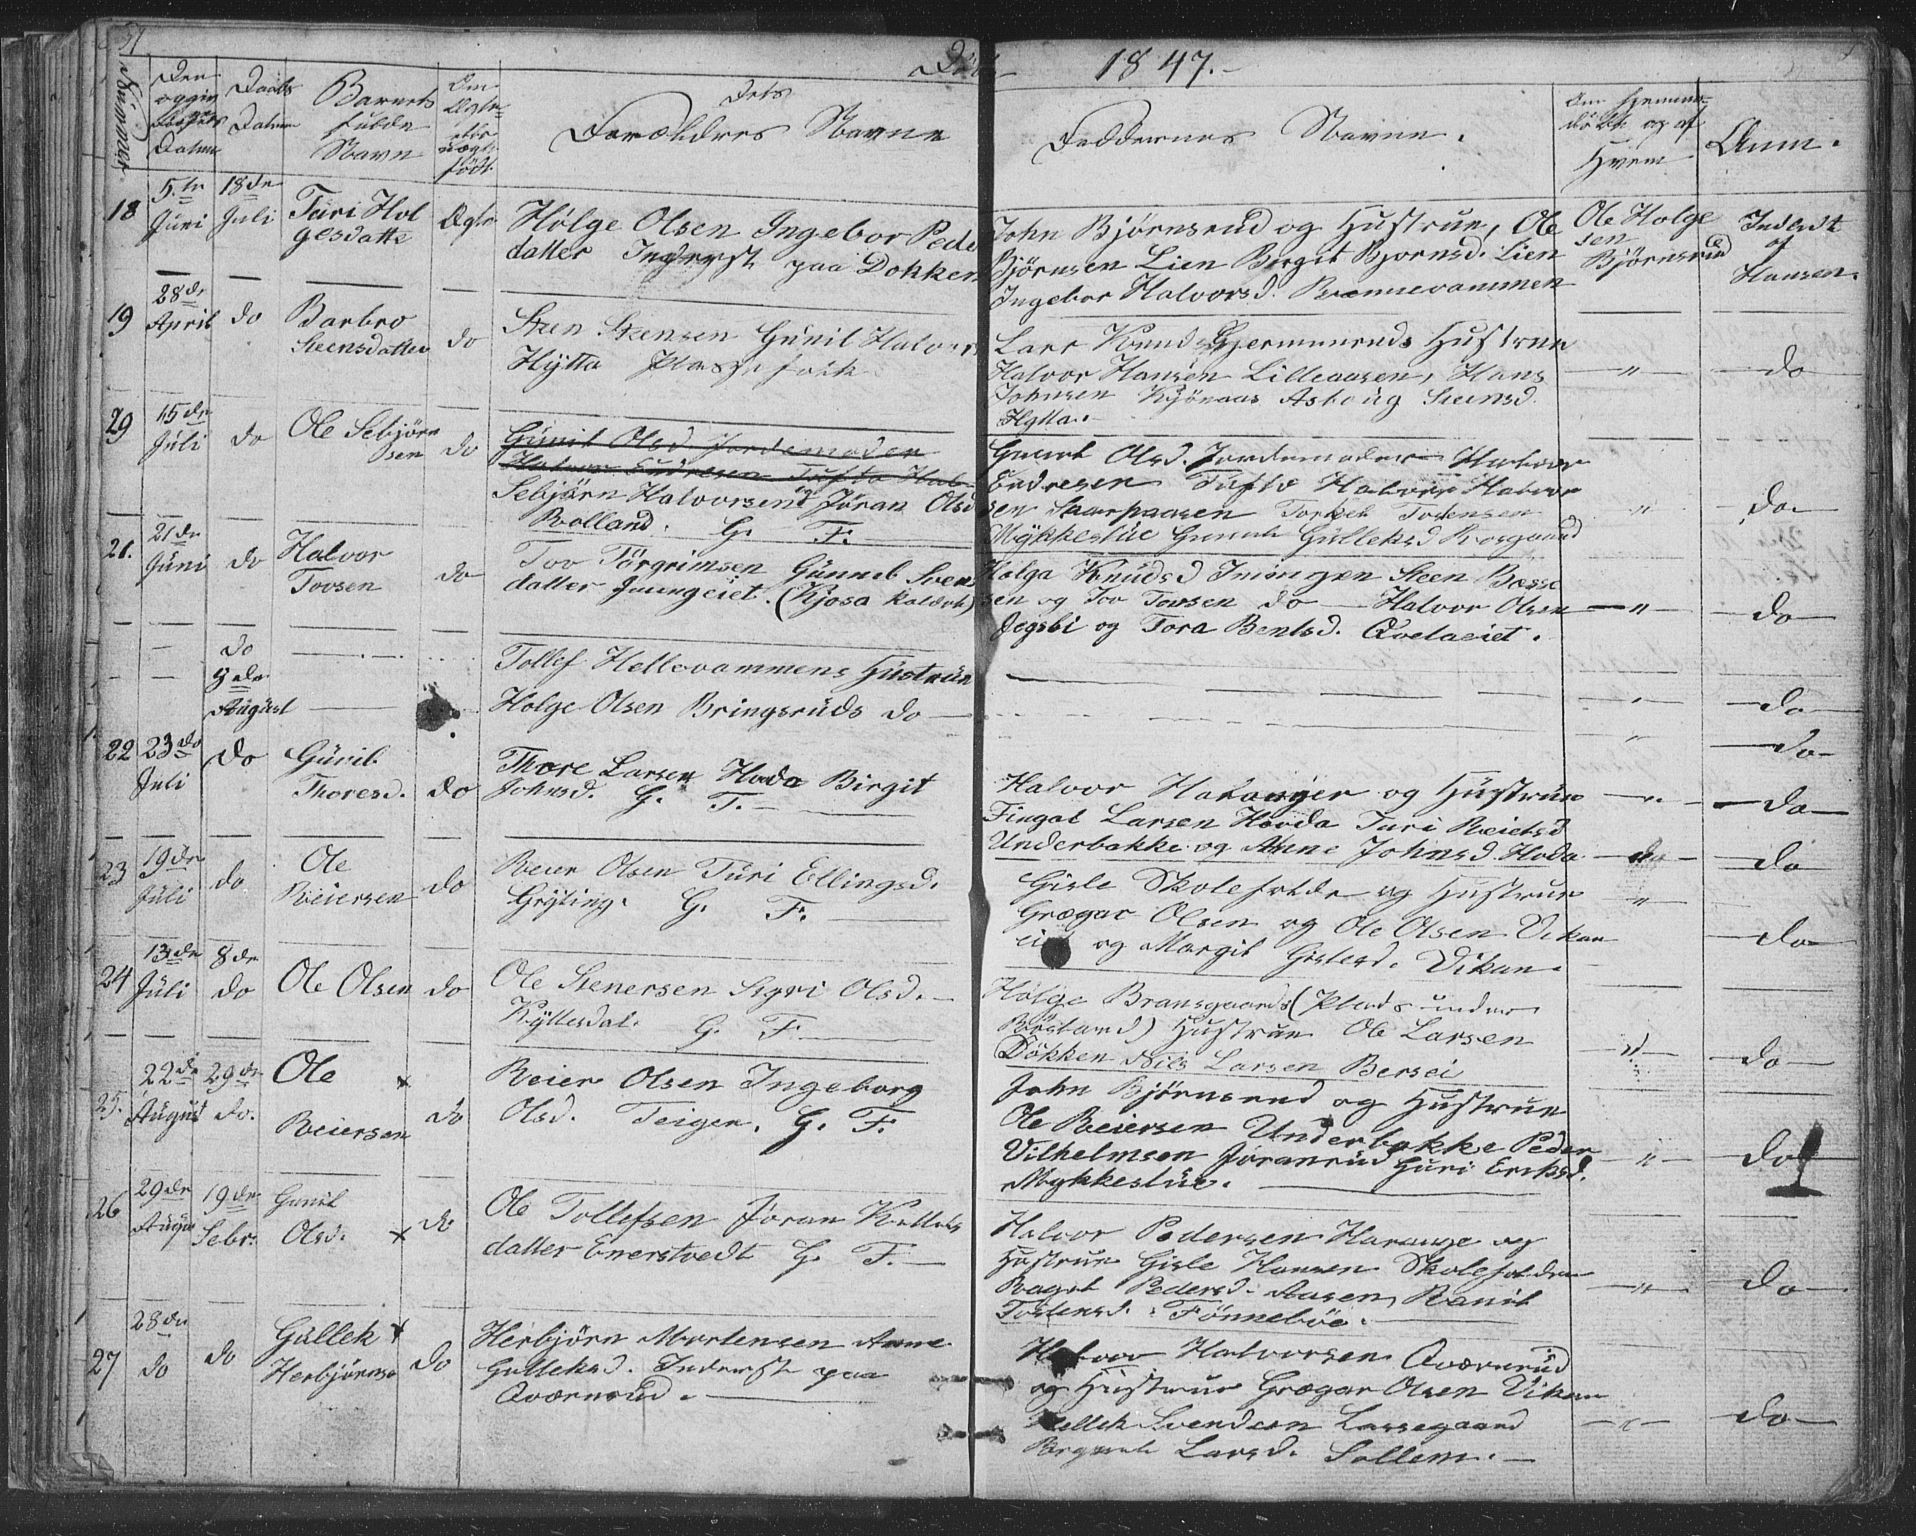 51
Døbte 1847.
Nummer
Den opgivne Fødsels Datum
Daabs Datum
Barnets fulde Navn
Om Ægte eller uægte født
Dets Forældres Navne
Faddernes Navne.
Om hjemmedöbt og af Hvem
Anm.
18
5te Juni
18de Juli
Turi Hol
gesdatte
Ægte
Hølge Olsen Ingebor Peders
datter Inderst paa Dokken
John Bjørnsrud og Hustrue, Ole
Bjørnsen Lien Birgit Bjornsd. Lien
Ingebor Halvorsd. Rønnevammen
Ole Holge
sen
Bjørnsrud
Indledt
af
Hansen.
19
28de April
do
Barbro
Steensdatter
do
Sten Stensen Gunil Halvors
Hytta Pladsfolk
Lars Knuds Gjermunruds Hustrue
Halvor Hansen Lilleaasen, Hans
Johnsen Kjønaas Asboug Steensd.
Hytta.
"
do
20
15de Juli
do
Ole Sebjørn
sen
do
Gunil Olsd Jordemoder
Halvor Endresen Tufto Hal
Sebjørn Halvorsen og Jøran Olsd
Rolland. G. F.
Gunil Olsd. Jordemoder Halvor
Endresen Tufto Halvor Halvor
sen Torkel Tostensen
Mykkestue Gunil Gulleksd
"
do
21.
21de Juni
do
Halvor
Tovsen
do
Tov Torgrimsen Gunneb Svens
datter (Kjosa kaldet)
Holga Knudsd Steen
sen og Tov Tovsen do Halvor Olsen
Jegsbi og Tora Bentsd. Qvelaeiet.
"
do
do
Tollef Hellevammens Hustrue
9de August
Holge Olsen Bringsruds do
"
do
"
do
22
23de Juli
do
Gunil
Thoresd.
do
Thore Larsen Hoda Birgit
Johnsd. G. F.
Halvor og Hustrue
Fingal Larsen Hovda Turi Reiersd
Underbakke og Anne Johnsd. Hoda
"
do
do
do
23
19de Juli
do
Ole
Reiersen
do
Reier Olsen Turi Ellingsd.
Gryting. G. F.
Gisle Skolefolde og Hustrue
Grægar Olsen og Ole Olsen Vikan
og Margit Gislesd. Vikan.
"
do
24
13de Juli
8de do
Ole Olsen
do
Ole Stenersen Sigri Olsd.
Kyllesdal. G. F.
Holge Bransgaards (Plads under
Hustrue Ole Larsen
Dokken Nils Larsen Bersei
"
do
25.
22de August
29de do.
Ole x
Reiersen
do
Reier Olsen Ingeborg
Olsd. Teigen. G. F.
John Bjørnsrud og Hustrue
Ole Reiersen Underbakke Peder
Vilhelmsen Jøranrud Guri Eriksd.
Mykkestue.
"
do
26
29de August
19de Sebr.
Gunil
Olsd. x
do
Ole Tollefsen Jøran Kittels
datter Enerstvedt G. F.
Halvor Pedersen Haraage og
Hustrue Gisle Hansen Skolefolden
Ragel Pedersd. Aasen, Ranil
Tostensd. Fønnebøe.
"
do
27
28de do
do
Gullek x
Herbjørnsen
do
Herbjørn Mortensen Anne
Gulleksd. Inderst paa
Qværnrud.
Halvor Halvorsen Qværnrud
og Hustrue Grægar Olsen Vikan
Svendsen Lassegaard
Larsd. Sollem.
"
do